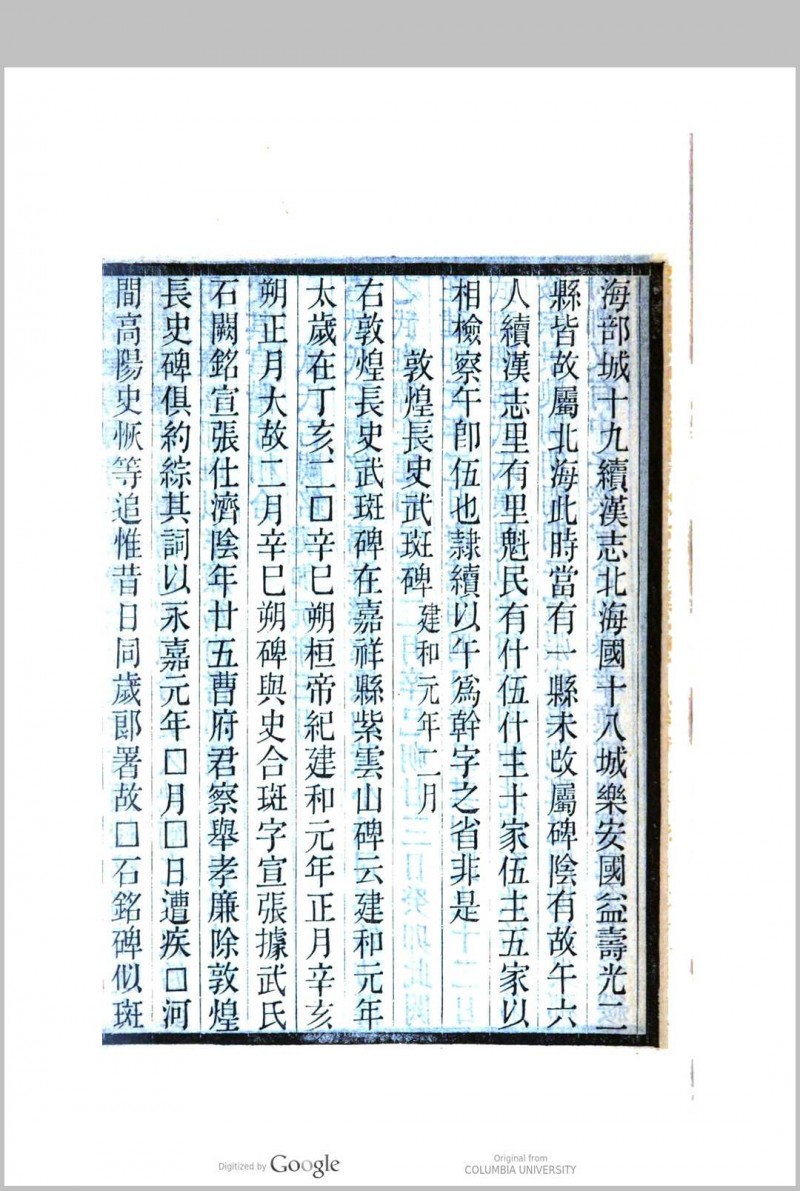 海部城十九續漢志北海國十八城樂安國益壽光二
縣皆故屬北海此時當有一縣未改屬碑陰有故午六
人續漢志里有里魁民有什伍什主十家伍主五家以
相檢察午卽伍也隷續以午爲幹字之省非是
敦煌長史武斑碑 建和元年二月
右敦煌長史武斑碑在嘉祥縣紫雲山碑云建和元年
太歲在丁亥二□辛巳朔桓帝紀建和元年正月辛亥
朔正月大故二月辛巳朔碑與史合斑字宣張據武氏
石闕銘宣張仕濟陰年廿五曹府君察舉孝廉除敦煌
長史碑俱約綜其詞以永嘉元年□月□日遭疾□河
間高陽史恢等追惟昔日同歲郎署故□石銘碑似斑
Digitized by Google
Original from
COLUMBIA UNIVERSITY